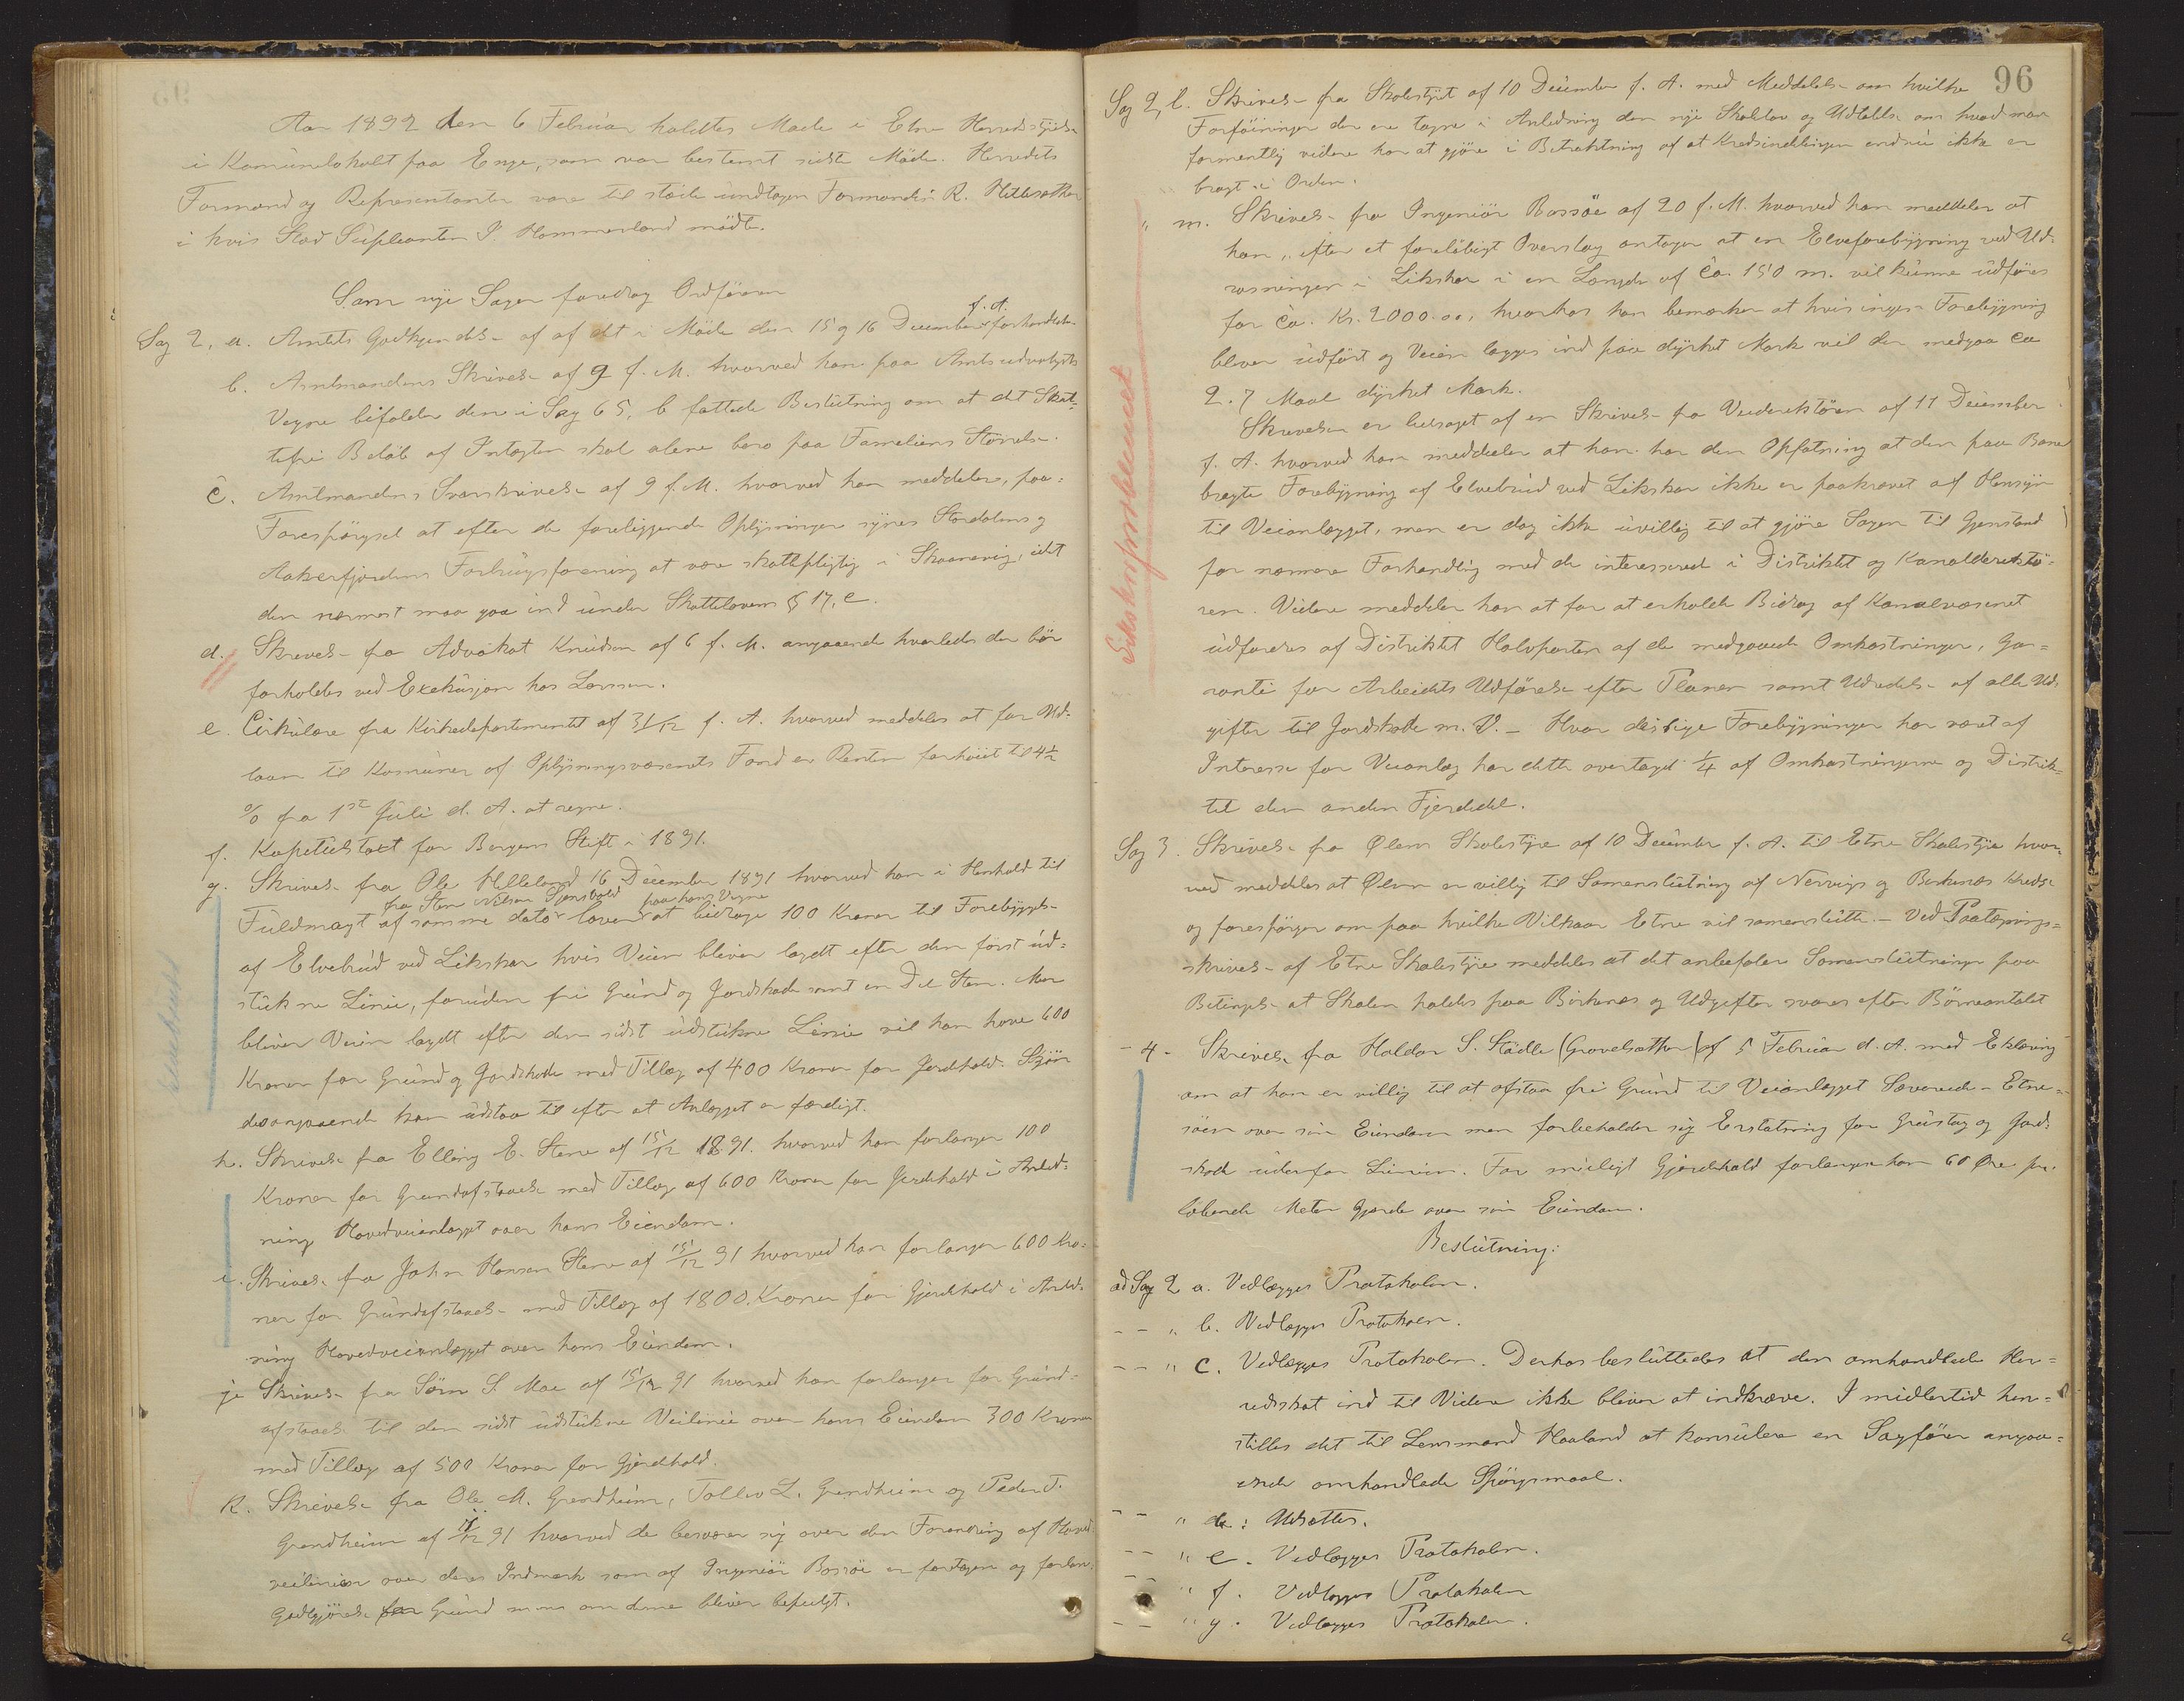 Aar 1892 den 6 Februar holdtes Møde i Etne Herredsstyrelse
i Komunelokalet paa Enge, som var bestemt sidste Möde. Herredets
Formænd og Representanter vare til stæde undtagen Formanden R. Hettesæther
i hvis Sted Supleanten I. Hammerland mödte.
Som nye Sager foredrog Ordføreren
Sag 2, a. Amtets Godkjendelse af af det i Möde den 15 og 16 December f. A. forhandlede
b. Amtmandens Skrivelse af 9 f. M. hvorved han paa Amtsudvalgets
Vegne bifalder den i Sag 65, b fattede Beslutning om at det Skat-
tefri Belöb af Indtægten skal alene bero paa Fameliens Störrelse.
c. Amtmandens Svarskrivelse af 9 f. M. hvorved han meddeler, paa
Forespörgsel at efter de foreliggende Oplysninger synes Stordalens og
Aakrefjordens Forbrugsforening at være skattepligtig i Skaanevig, idet
den nærmest maa gaa ind under Skattelovens § 17, c.
d. Skrivelse fra Advokat Knudsen af 6 f. M. angaaende hvorledes der bör
forholdes ved Exekusjon hos Larssen.
e. Cirkulære fra Kirkedepartementet af 31/12 f. A. hvorved meddeles at for Ud-
laan til Komuner af Oplysningsvæsenets Fond er Renten forhöiet til 4½
% fra 1ste Juli d. A. at regne.
f. Kapitelstaxt for Bergens Stift i 1891.
g. Skrivelse fra Ole Helleland 16 December 1891 hvorved han i Henhold til
Fuldmagt fra Sten Nilsen Sjønsvold af samme dato lover paa hans Vegne at bidrage 100 Kroner til Forebyggelse
af Elvebrud ved Likskar hvis Veien bliver lagdt efter den först ud-
stukne Linie, foruden fri Grund og Jordskade samt en Del Sten. Men
bliver Veien lagdt efter den sidst udstukne Linie vil han have 600
Kroner for Grund og Jordskade med Tillæg af 400 Kroner for Jerdehold. Skjön
desangaaende kan udstaa til efter at Anlægget er færdigt.
h. Skrivelse fra Elling E. Stene af 15/12 1891. hvorved han forlanger 100
Kroner for Grundafstaaelse med Tillæg af 600 Kroner for Jerdehold i Anled-
ning Hovedveianlægget over hans Eiendom.
i. Skrivelse fra John Hansen Stene af 15/12 91 hvorved han forlanger 600 Kro-
ner for Grundafstaaelse med Tillæg af 1800. Kroner for Gjerdehold i Anled-
ning Hovedveianlægget over hans Eiendom.
j. Skrivelse fra Sörn S. Moe af 15/12 91 hvorved han forlanger for Grund-
afstaaelse til den sidst udstukne Veilinie over hans Eiendom 300 Kroner
med Tillæg af 500 Kroner for Gjerdehold.
k. Skrivelse fra Ole M. Grendheim, Tollev L. Grendheim og Peder T.
Grendheim af 17/12 91 hvorved de besværer sig over den Forandring af Hoved-
veilinien over deres Indmark som af Ingeniör Bossöe er foretagen og forlan-
Godtgjörelse for Grund m.m. om denne bliver befulgt.
96
Sag 2, l. Skrivelse fra Skolestyret af 10 December f. A. med Meddelelse om hvilke
Forföininger der ere tagne i Anledning den nye Skolelov og Udtalelse om hvad man
formentlig videre har at gjöre i Betraktning af at Kredsinddelingen endnu ikke er
bragt i Orden.
" m. Skrivelse fra Ingeniör Bossöe af 20 f. M. hvorved han meddeler at
han „ efter et foreløbigt Overslag antager at en Elveforebygning ved Ud-
rasningen i Likskar i en Længde af Ca. 150 m. vil kunne udföres
for Ca. Kr. 2000.00, hvorhos han bemærker at hvis ingen Forebygning
bliver udfört og Veien lægges ind paa dyrket Mark vil der medgaa Ca
2.7 Maal dyrket Mark.
Skrivelsen er ledsaget af en Skrivelse fra Veidirektören af 11 December
f. A. hvorved han meddeler at han har den Opfatning at den paa Bane
bragte Forebygning af Elvebrud ved Likskar ikke er paakrævet af Hensyn
til Veianlægget, men er dog ikke uvillig til at gjöre Sagen til Gjenstand
for nærmere Forhandling med de interesserede i Distriktet og Kanaldirektö-
ren. Videre meddeler han at for at erholde Bidrag af Kanalvæsenet
udfordres af Distriktet Halvparten af de medgaaede Omkostninger, Ga-
ranti for Arbeidets Udførelse efter Planen samt Udredelse af alle Ud-
gifter til Jordskade m. V. – Hvor deslige Forebygninger har været af
Interesse for Veianlæg har dette overtaget ¼ af Omkostningerne og Distrik-
tet den anden Fjerdedel.
Sag 3. Skrivelse fra Ølens Skolestyre af 10 December f. A. til Etne Skolestyre hvor-
ved meddeles at Ølen er villig til Samenslutning af Nervigs og Berkenæs Kredse
og forespørger om paa hvilke Vilkaar Etne vil samenslutte. – Ved Paategnings-
skrivelse af Etne Skolestyre meddeles at det anbefaler Samenslutningen paa
Betingelse at Skolen holdes paa Birkenæs og Udgifter svares efter Börneantalet
- 4 - Skrivelse fra Haldor S. Städle (Grovelsæther) af 5 Februar d. A. med Erklæring
om at han er villig til at afstaa fri Grund til Veianlægget Sævareid – Etne-
söen over sin Eiendom men forbeholder sig Erstatning for Grustag og Jord-
skade udenfor Linien. For muligt Gjerdehold forlanger han 60 Øre pr.
löbende Meter Gjerde over sin Eiendom.
Beslutning:
ad Sag 2 a. Vedlægges Protokolen.
- - " b. Vedlægges Protokolen.
- - " c. Vedlægges Protokolen. Derhos besluttedes at den omhandlede Her-
redsskat ind til Videre ikke bliver at indkræve. I midlertid hen-
stilles det til Lensmand Haaland at konsulere en Sagförer angaa-
ende omhandlede Spörgsmaal.
- - " d: Udsættes.
- - " e. Vedlægges Protokolen.
- - " f. Vedlægges Protokolen
- - " g. Vedlægges Protokolen.